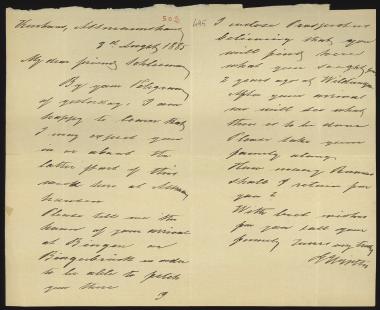 502
695
Kurhaus, Assmannshausen
9th August 1885
My dear friend Schliemann
By your telegram
of yesterday, I am
happy to learn that
I may expect you
in or about the
latter part of this
week here at Assmannshausen
Please tell me the
hour of your arrival
at Bingen or
Bingerbrück in order
to be able to fetch
you there
I enclose Prospectus
believing that you
will find here
what you sought for
2 years ago at Wildungen
After your arrival
we will see what
there is to be done
Please take your
family along.
How many Rooms
shall I retain for
you?
With best wishes
for you and your
family Yours very truly